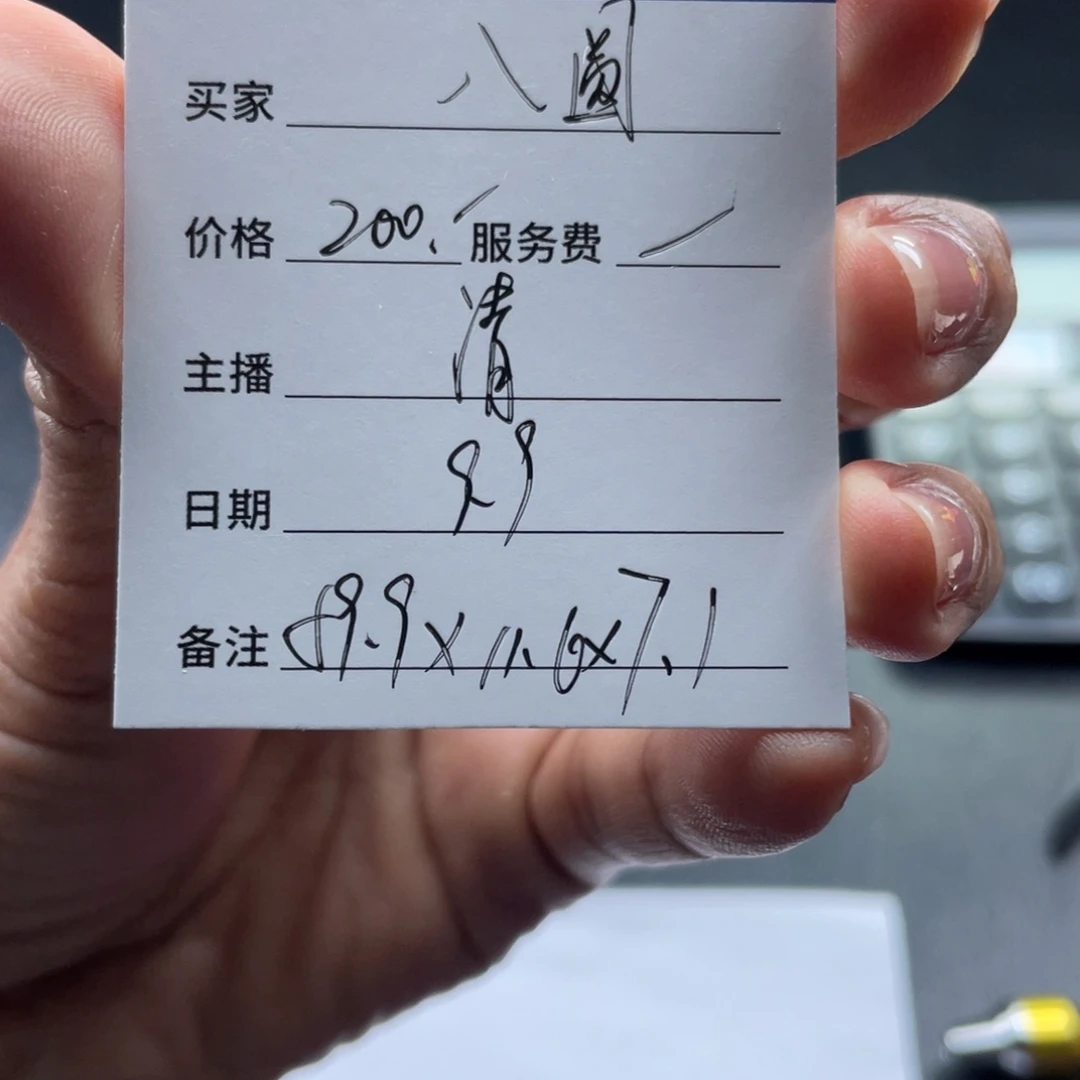 买家 八圆
价格 200. 服务费 /
主播 清
日期 9.9
备注 59.9×11.6×7.1